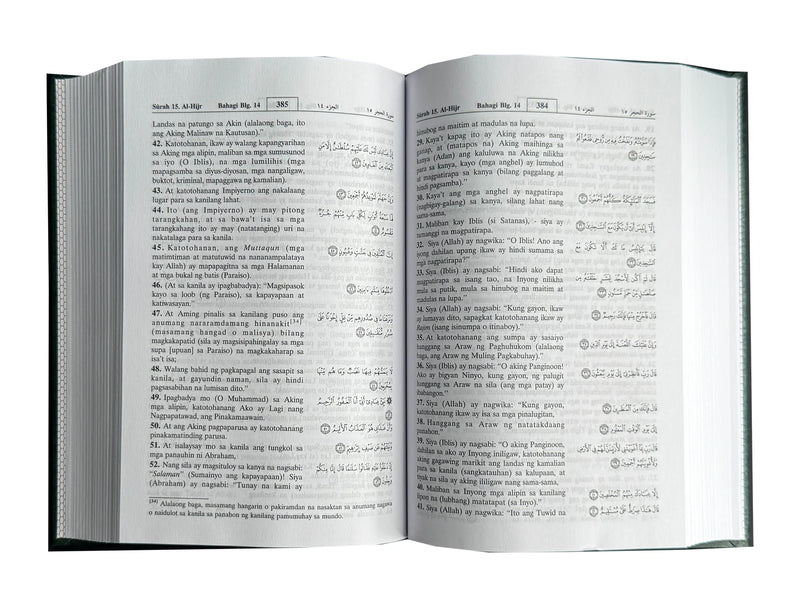 Sûrah 15. Al-Hijr Bahagi Blg. 14 384 الجزء ١٤ سورة الحجر ١٥
hinubog na maitim at madulas na lupa.
29. Kaya't kapag ito ay Aking natapos nang
ganap, at (matapos na) Aking maihinga sa
kanya (Adan) ang kaluluwa na Aking nilikha
para sa kanya, kayo (mga anghel) ay lumuhod
at magpatirapa sa kanya (bilang paggalang at
hindi pagsamba)."
30. Kaya't ang mga anghel ay nagpatirapa
(nagbigay-galang) sa kanya, silang lahat nang
sama-sama,
31. Maliban kay Iblis (si Satanas), - siya ay
tumanggi na magpatirapa.
32. Siya (Allah) ay nagwika: "O Iblis! Ano ang
iyong dahilan upang ikaw ay hindi sumama sa
mga nagpatirapa?"
33. Siya (Iblis) ay nagsabi: "Hindi ako dapat
magpatirapa sa isang tao, na Inyong nilikha
mula sa putik, mula sa hinubog na maitim at
madulas na lupa."
34. Siya (Allah) ay nagsabi: "Kung gayon, ikaw
ay lumayas dito, sapagkat katotohanang ikaw ay
Rajim (isang isinumpa o itinaboy)."
35. At katotohanang ang sumpa ay sasaiyo
hanggang sa Araw ng Paghuhukom (alalaong
baga, ang Araw ng Muling Pagkabuhay)."
36. Siya (Iblis) ay nagsabi: "O aking Panginoon!
Ako ay bigyan Ninyo, kung gayon, ng palugit
hanggang sa Araw na sila (ang mga patay) ay
ibabangon."
37. Siya (Allah) ay nagwika: "Kung gayon,
katotohanang ikaw ay isa sa mga pinalugitan,
38. Hanggang sa Araw ng natatakdaang
panahon."
39. Siya (Iblis) ay nagsabi: "O aking Panginoon,
dahilan sa ako ay Inyong iniligaw, katotohanang
aking gagawing marikit ang landas ng kamalian
para sa kanila (sangkatauhan) sa kalupaan, at
tiyak na sila ay aking ililigaw nang sama-sama,
40. Maliban sa Inyong mga alipin sa kanilang
lipon na (lubhang) matatapat (sa Inyo)."
41. Siya (Allah) ay nagwika: "Ito ang Tuwid na
فَإِذَا سَوَّيْتُهُ وَنَفَخْتُ فِيهِ مِن رُّوحِي فَقَعُوا لَهُ
سَاجِدِينَ ٢٩
فَسَجَدَ الْمَلَائِكَةُ كُلُّهُمْ أَجْمَعُونَ ٣٠
إِلَّا إِبْلِيسَ أَبَى أَن يَكُونَ مَعَ السَّاجِدِينَ ٣١
قَالَ يَا إِبْلِيسُ مَا لَكَ أَلَّا تَكُونَ مَعَ
السَّاجِدِينَ ٣٢
قَالَ لَمْ أَكُن لِّأَسْجُدَ لِبَشَرٍ خَلَقْتَهُ مِن
صَلْصَالٍ مِّنْ حَمَإٍ مَّسْنُونٍ ٣٣
قَالَ فَاخْرُجْ مِنْهَا فَإِنَّكَ رَجِيمٌ ٣٤
وَإِنَّ عَلَيْكَ اللَّعْنَةَ إِلَى يَوْمِ الدِّينِ ٣٥
قَالَ رَبِّ فَأَنظِرْنِي إِلَى يَوْمِ يُبْعَثُونَ ٣٦
قَالَ فَإِنَّكَ مِنَ الْمُنظَرِينَ ٣٧
إِلَى يَوْمِ الْوَقْتِ الْمَعْلُومِ ٣٨
قَالَ رَبِّ بِمَا أَغْوَيْتَنِي لَأُزَيِّنَنَّ لَهُمْ فِي الْأَرْضِ
وَلَأُغْوِيَنَّهُمْ أَجْمَعِينَ ٣٩
إِلَّا عِبَادَكَ مِنْهُمُ الْمُخْلَصِينَ ٤٠
قَالَ هَذَا صِرَاطٌ عَلَيَّ مُسْتَقِيمٌ ٤١
Sûrah 15. Al-Hijr Bahagi Blg. 14 385 الجزء ١٤ سورة الحجر ١٥
Landas na patungo sa Akin (alalaong baga, ito
ang Aking Malinaw na Kautusan)."
42. Katotohanan, ikaw ay walang kapangyarihan
sa Aking mga alipin, maliban sa mga sumusunod
sa iyo (O Iblis), na mga lumilihis (mga
mapagsamba sa diyus-diyosan, mga nangaligaw,
buktot, kriminal, mapaggawa ng kamalian).
43. At katotohanang Impiyerno ang nakalaang
lugar para sa kanilang lahat.
44. Ito (ang Impiyerno) ay may pitong
tarangkahan, at sa bawa't isa sa mga
tarangkahang ito ay may (natatanging) uri na
nakatalaga para sa kanila.
45. Katotohanan, ang Muttaqun (mga
matimtiman at matutuwid na nananampalataya
kay Allah) ay mapapagitna sa mga Halamanan
at mga bukal ng batis (Paraiso).
46. (At sa kanila ay ipagbabadya): "Magsipasok
kayo sa loob (ng Paraiso), sa kapayapaan at
katiwasayan."
47. At Aming pinalis sa kanilang puso ang
anumang nararamdamang hinanakit[34]
(masamang hangad o malisya) bilang
magkakapatid (sila ay magsisipahingalay sa mga
supa [upuan] sa Paraiso) na magkakaharap sa
isa't isa;
48. Walang bahid ng pagkapagal ang sasapit sa
kanila, at gayundin naman, sila ay hindi
pagsasabihan na lumisan dito."
49. Ipagbadya mo (O Muhammad) sa Aking
mga alipin, katotohanang Ako ay Lagi nang
Nagpapatawad, ang Pinakamaawain.
50. At ang Aking pagpaparusa ay katotohanang
pinakamatinding parusa.
51. At isalaysay mo sa kanila ang tungkol sa
mga panauhin ni Abraham,
52. Nang sila ay magsituloy sa kanya na nagsabi:
"Salaman" (Sumainyo ang kapayapaan)! Siya
(Abraham) ay nagsabi: "Tunay na kami ay
إِنَّ عِبَادِي لَيْسَ لَكَ عَلَيْهِمْ سُلْطَانٌ إِلَّا مَنِ
اتَّبَعَكَ مِنَ الْغَاوِينَ ٤٢
وَإِنَّ جَهَنَّمَ لَمَوْعِدُهُمْ أَجْمَعِينَ ٤٣
لَهَا سَبْعَةُ أَبْوَابٍ لِّكُلِّ بَابٍ مِّنْهُمْ جُزْءٌ
مَّقْسُومٌ ٤٤
إِنَّ الْمُتَّقِينَ فِي جَنَّاتٍ وَعُيُونٍ ٤٥
ادْخُلُوهَا بِسَلَامٍ آمِنِينَ ٤٦
وَنَزَعْنَا مَا فِي صُدُورِهِم مِّنْ غِلٍّ إِخْوَانًا عَلَى
سُرُرٍ مُّتَقَابِلِينَ ٤٧
لَا يَمَسُّهُمْ فِيهَا نَصَبٌ وَمَا هُم مِّنْهَا
بِمُخْرَجِينَ ٤٨
نَبِّئْ عِبَادِي أَنِّي أَنَا الْغَفُورُ الرَّحِيمُ ٤٩
وَأَنَّ عَذَابِي هُوَ الْعَذَابُ الْأَلِيمُ ٥٠
وَنَبِّئْهُمْ عَن ضَيْفِ إِبْرَاهِيمَ ٥١
إِذْ دَخَلُوا عَلَيْهِ فَقَالُوا سَلَامًا قَالَ إِنَّا مِنكُمْ
وَجِلُونَ ٥٢
[34] Alalaong baga, masamang hangarin o pakiramdan na nasaktan sa anumang nagawa
o naidulot sa kanila sa panahon ng kanilang pamumuhay sa mundo.